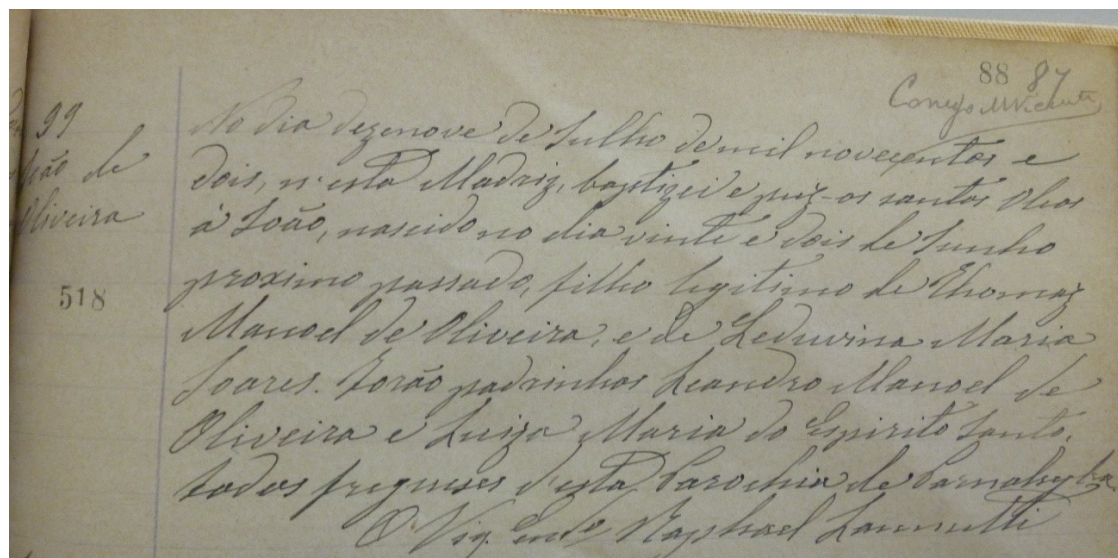 88 87
Conego M Vicente
99
João de
Oliveira
518
No dia dezenove de Julho de mil novecentos e
dois, n'esta Madriz, baptizei e puz-os santos oleos
á João, nascido no dia vinte e dois de Junho
proximo passado, filho legitimo de Thomaz
Manoel de Oliveira, e de Leduvina Maria
Soares. Forão padrinhos Leandro Manoel de
Oliveira e Luiza Maria do Espirito Santo,
todos freguezes d'esta Parochia de Parnahyba
O Vig. Raphael